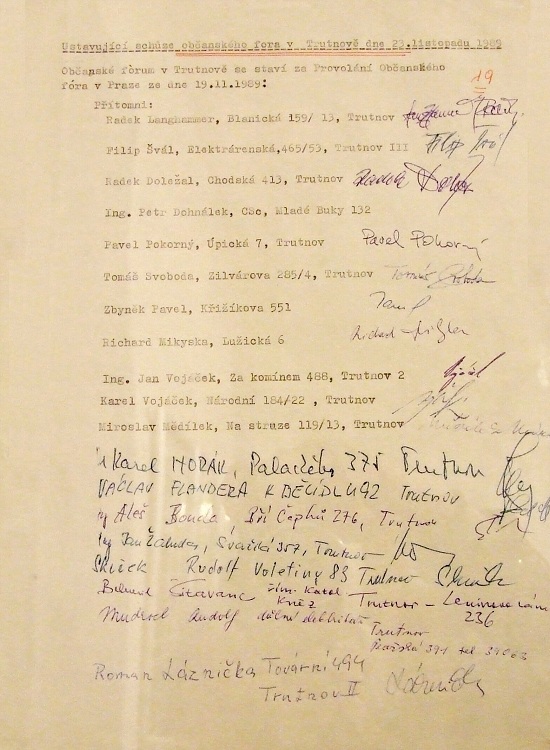 Ustavující schůse občanského fora v Trutnově dne 23.listopadu 1989
19
Občanské fòrum v Trutnově se staví za Provolání Občanského
fóra v Praze ze dne 19.11.1989:
Přítomni:
Radek Langhammer, Blanická 159/ 13, Trutnov
Filip Švál, Elektrárenská,465/53, Trutnov III Filip
Radek Doležal, Chodská 413, Trutnov Radek
Ing. Petr Dohnálek, CSc, Mladé Buky 132
Pavel Pokorný, Úpická 7, Trutnov Pavel Pokorný
Tomáš Svoboda, Zilvárova 285/4, Trutnov Tomáš Svoboda
Zbyněk Pavel, Křižíkova 551
Richard Mikyska, Lužická 6
Ing. Jan Vojáček, Za komínem 488, Trutnov 2
Karel Vojáček, Národní 184/22 , Trutnov
Miroslav Mědílek, Na struze 119/13, Trutnov
Karel HORÁK, Palackého 375 Trutnov
VÁCLAV FLANDERA K BĚLIDLU 92 TRUTNOV
Aleš Bouda Bří Čapků 276, Trutnov
Ing Jan 357, Trutnov
Rudolf Voletiny 83 Trutnov
řím. katol.
kněz Trutnov - Leninovo nám
236
Rudolf
Trutnov
391 tel
Roman Láznička Tovární 494
Trutnov II